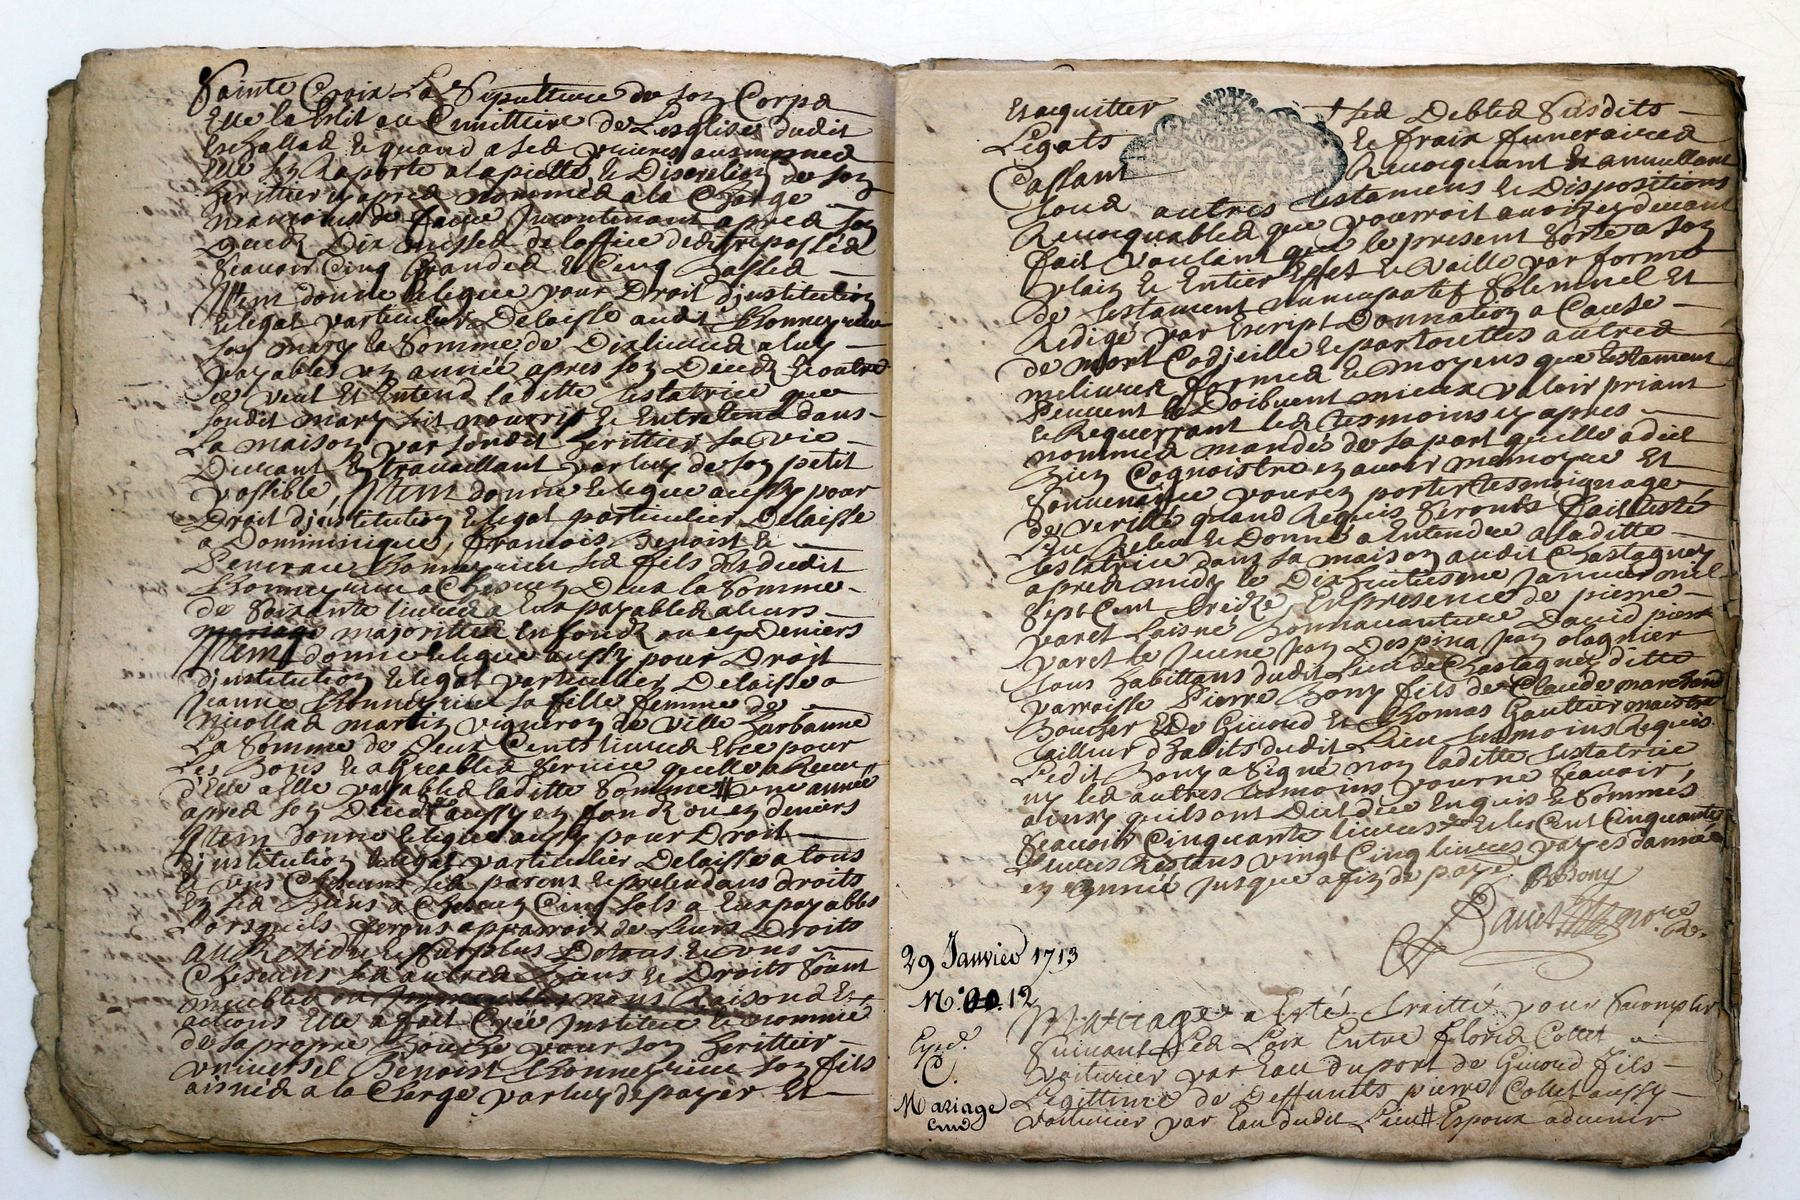 Sainte Croix La Sepulture de son Corps
Elle la Eslit au Cimittiere de Lesglise dudit
Eschallas & quand a ses prieres ausmones
Elle sen Raporte a la piette & Discretion de son
herittier cy apres nomme a la Charge
neanmoins de faire Incontinant apres son
Deces Dix Messes de loffice des trepasses
scavoir Cinq Grandes & Cinq Basses
Item donne & legue pour Droit dinstitution
& legat particulier Delaisse audit Thonnerieux
son mary la Somme de Dix livres a luy
payables un année apres son Deces & outre
ce veut Et Entend laditte testatrice que
sondit mary soit nourry & Entretenu dans
La maison par sondit herittier sa vie
Durant En travaillant par luy de son petit
possible, Item donne & legue aussy pour
Droit dinstitution & legat particulier Delaisse
a Dominique, francois, Benoist &
Thonnerieux ses fils & dudit
Thonnerieux a Chescun Deux la Somme
de Soixante livres a Eux payables a leurs
mariage majorittes En fondz ou en Deniers
Item donne & legue aussy pour Droit
dinstitution & legat particulier Delaisse a
Jeanne Thonnerieux sa fille femme de
Nicollas martin vigneron de Ville
La Somme de Deux Cents livres & ce pour
Les Bons & agreables Service quelle a Receu
delle a Elle payables laditte Somme # une année
apres son Deces aussy en fondz ou en deniers
Item donne & legue aussy pour Droit
dinstitution & legat particulier Delaisse a tous
& uns Chescuns ses parens & pretendans droits
En ses Biens a Chescun Cinq Sols a Eux payables
Lorsquils ferons apparroir de Leurs Droits
Au Residu & surplus De tous & uns
Chescuns ses autres Biens & Droits Soient
meubles ou Immeubles noms Raisons &
actions Elle a fait Crée Institue & Nommé
de sa propre Bouche pour son herittier
universel Benoist Thonnerieux son fils
aisnés a la Charge par luy de payer Et
Et acquitter ses Debtes Susdits
Legats & fraix funeraires
Cassant Revocquant & annullant
tous autres testamens & Dispositions
Revocquables que pourroit avoir cy devant
fait voulant que le present Sorte a son
plain & Entier Effet & Vaille par forme
de testament nuncupatif Solemnel Et
Redigé par Escript Donnation a Cause
de mort Codicille & par touttes autres
melieures formes & moyens que testament
Peuvent & Doibvent mieux valoir priant
& Requerrant les tesmoins cy apres
nommes mandés de sa part quelle a dit
Bien Cognoistre en avoir memoyre Et
Souvenance pour en porter tesmoignage
de verité quand Requis Seronts fait testé
Leu Releu & Donné a Entendre a laditte
testatrice dans sa maison audit Chastagney
apres midy le Dix huitiesme Janvier mil
Sept Cent treize, En presence de pierre
varet Laisné Bonnavanture David pierre
varet le Jeune Jean Despina Jean olagnier
tous habittans dudit Lieu de Chastagney ditte
parroisse Pierre Bony fils de Claude marchand
Boucher & de Givord & Thomas Gaultier maistre
tailleur dhabits dudit Lieu tesmoins Requis
Ledit Bony a Signé non laditte testatrice
ny les autres tesmoins pour ne Scavoir,
ainsy quils ont Dict de ce Enquis & Sommés
Scavoir Cinquante livres & les Cent Cinquante
Livres Restans vingt Cinq livres payes dannée
en Année Jusque a fin de paye. P Bony
29 Janvier 1713
N.º 12
Exp.
Mariage a Esté traitté pour Saccomplir
Suivant Les Loix Entre floris Collet
Voiturier par Eau du port de Givord fils
Mariage
Legittime de Deffuncts pierre Collet aussy
voiturier par Eau dudit Lieu # Espoux advenir